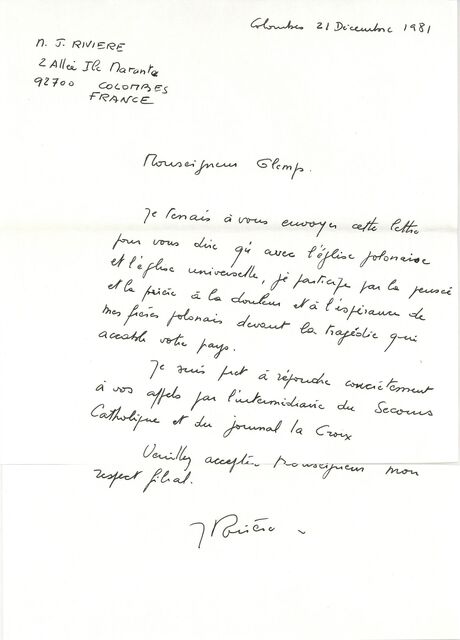 Colombes 21 Décembre 1981
M. J. RIVIERE
2 Allée Ile Marante
92700 COLOMBES
FRANCE
Monseigneur Glemp.
Je tenais à vous envoyer cette lettre
pour vous dire qu'avec l'église polonaise
et l'église universelle, je participe par la pensée
et la prière à la douleur et à l'espérance de
mes frères polonais devant la tragédie qui
accable votre pays.
Je suis prêt à répondre concrètement
à vos appels par l'intermédiaire du Secours
Catholique et du journal la Croix
Veuillez accepter Monseigneur mon
respect filial.
J Rivière